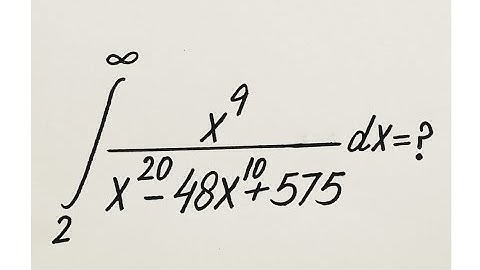 ∫₂^∞ x⁹/(x²⁰-48x¹⁰+575) dx=?